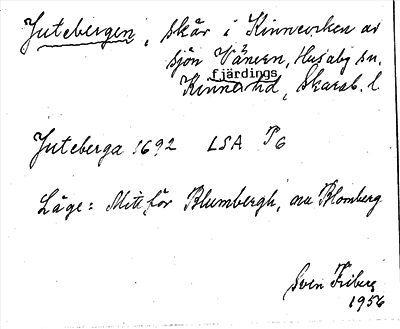 Jutebergen, skär i Kinneviken av
sjön Vänern, Husaby sn.
fjärdings
Kinne hd, Skarab. l.
Juteberga 1692 LSA P6
Läge: Mitt för Blumbergh, nu Blomberg
Sven Friberg
1956